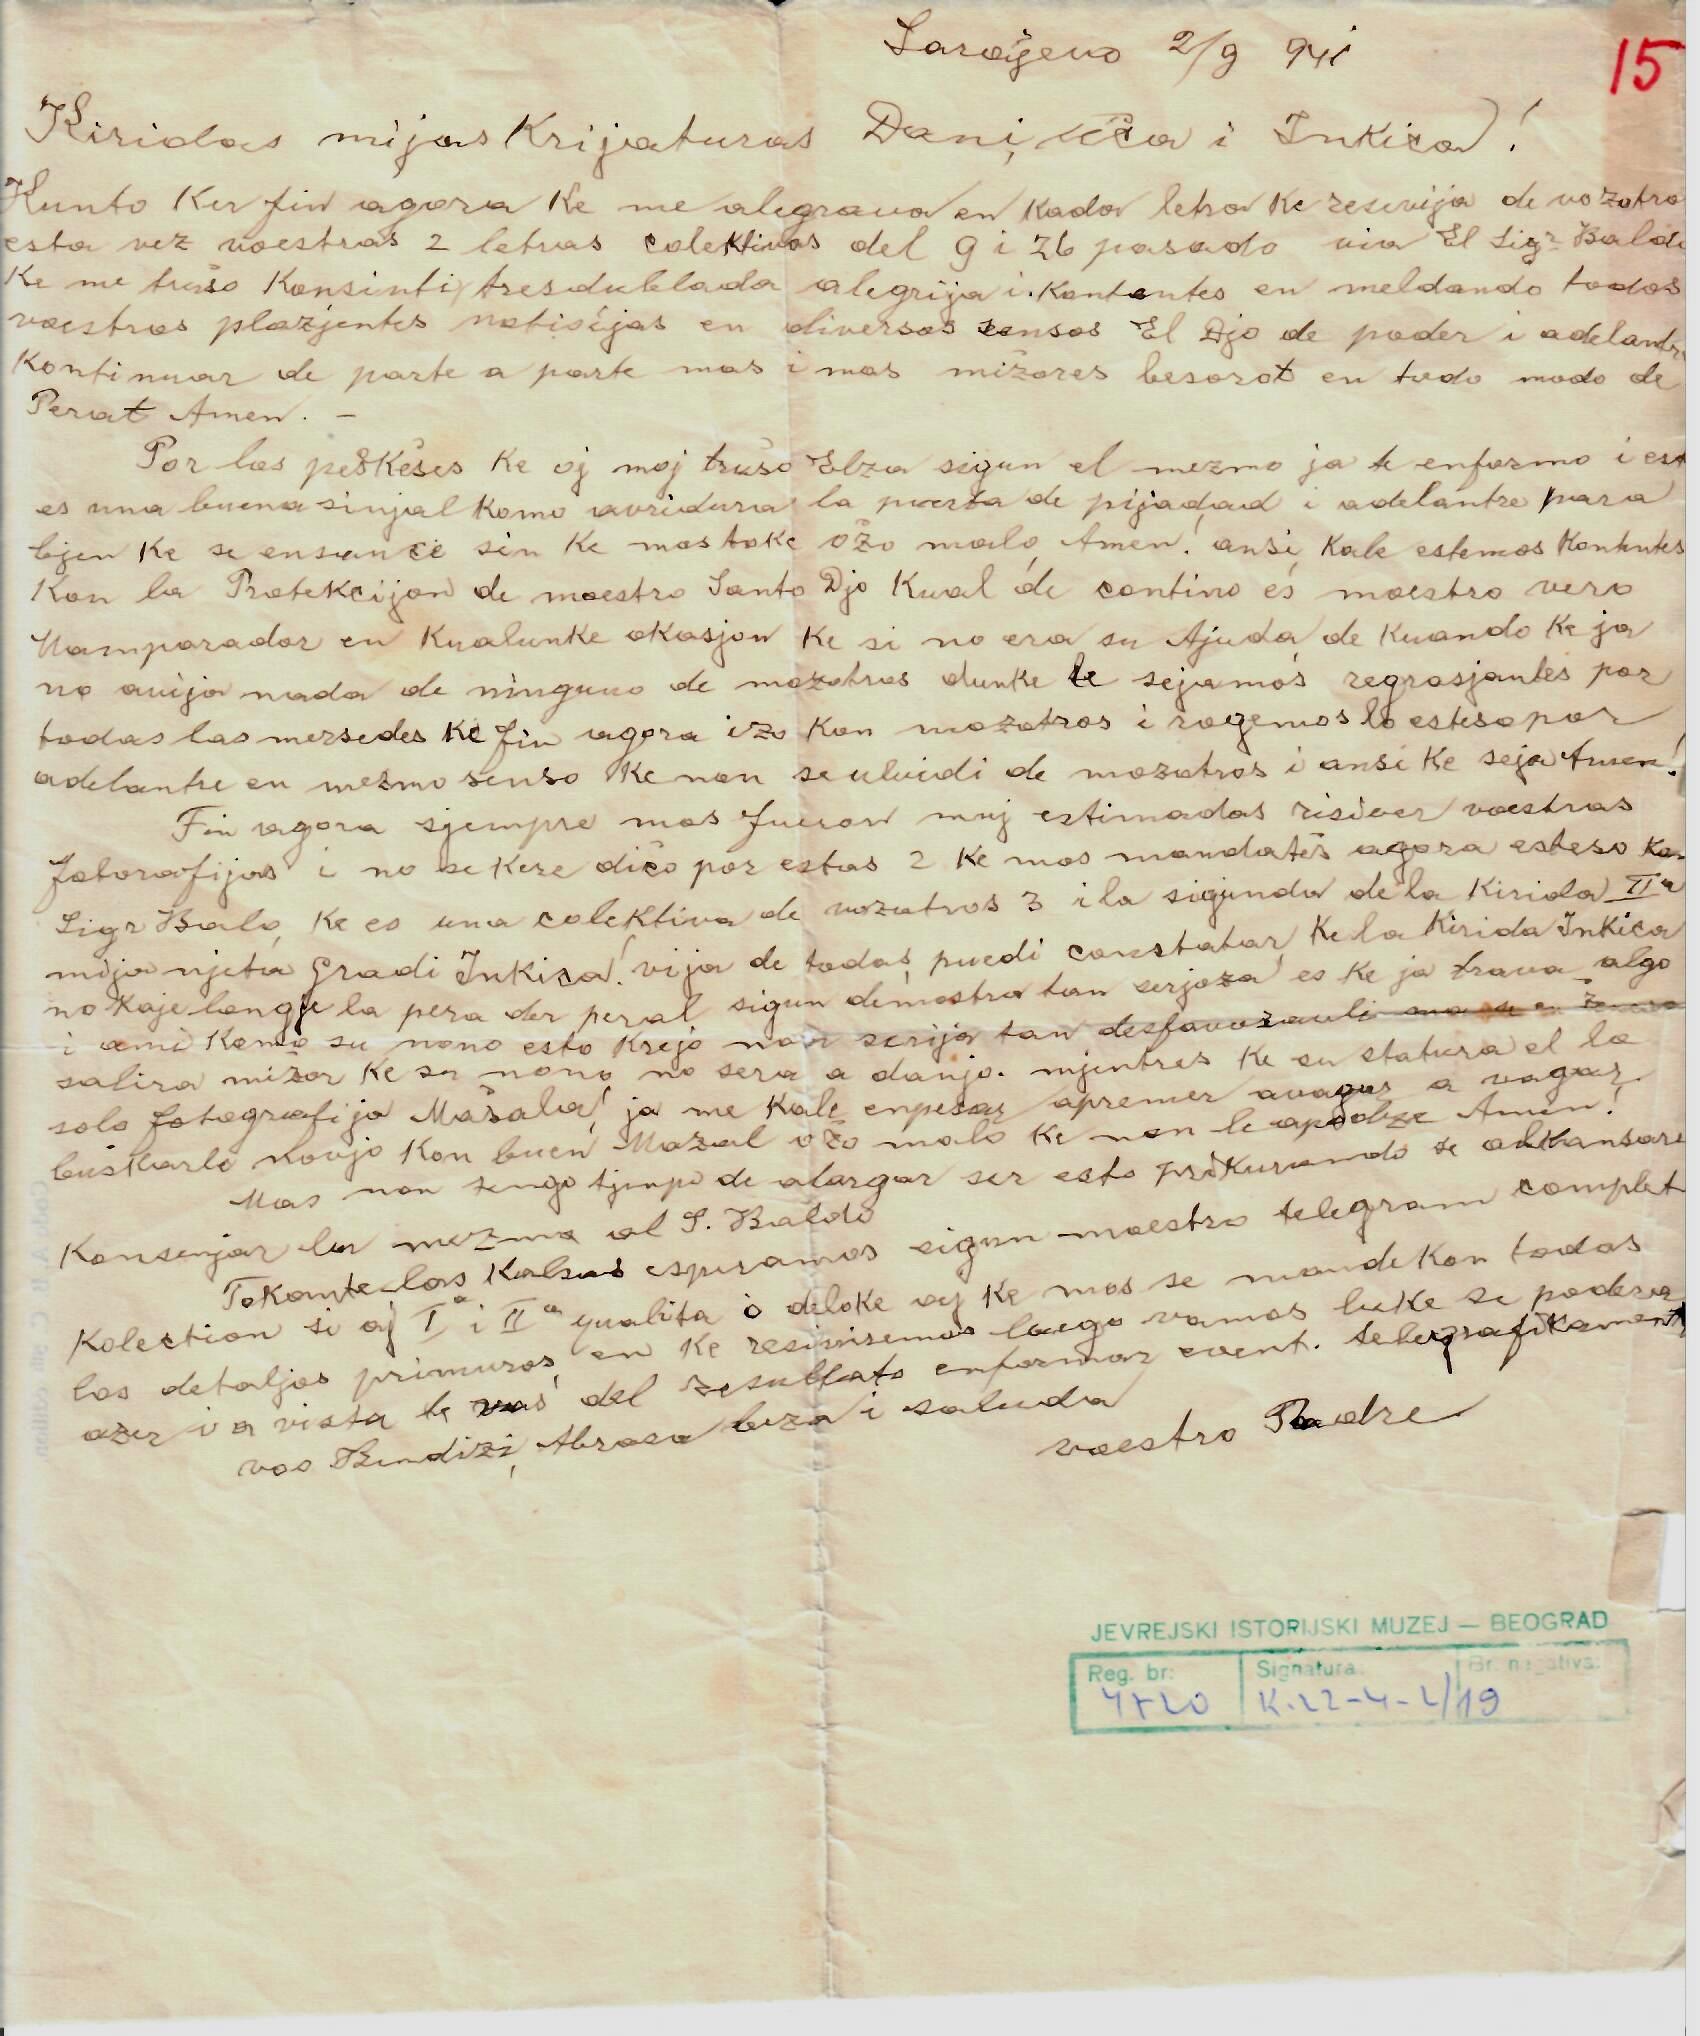 Sarajevo 2/9 941
15
Kiridas mijas Krijaturas Dani, Uča i Inkica!
Kunto Ker fin agora Ke me alegrava en Kada letra Ke resevija de vozotro
esta vez voestras 2 letras colektivas del 9 i 26 pasado via El Sigr Baldo
Ke me trušo Konsinti tresdublada alegrija i Kontentes en meldando todas
voestras plazjentes notisijas en diversos sensos El Djo de poder i adelantre
Kontinuar de parte a parte mas i mas mižores besorot en todo modo de
Perat Amen. –
Por los peškešes Ke oj moj trušo Elza sigun el mezmo ja te enformo i est
es una buena sinjal Komo avridura la puerta de pijadad i adelantre para
bjen Ke se ensanče sin Ke mos toke ožo malo Amen! ansi, Kale estemos Kontentes
Kon la Protekcijon de moestro Santo Djo Kual de contino es moestro vero
Mamparador en Kualunke okasjon Ke si no era su Ajuda, de Kuando Ke ja
no avija nada de ninguno de mozotros dunke le sejamos regrasjantes por
todas las mersedes Ke fin agora izo Kon mozotros i rogemos lo esteso por
adelantre en mezmo senso Ke non se ulvidi de mozotros i ansi Ke seja Amen!
Fin agora sjempre mos fueron muj estimadas risiver voestras
fotorafijas i no se Kere dičo por estas 2 Ke mos mandatěs agora esteso Kon
Sigr Baldo, Ke es una colektiva de vozotros 3 i la sigunda de la Kirida IIa
mija njeta Gradi Inkica! vija de todas, puedi constatar, Ke la Kirida Inkica
no Kaje longe la pera der peral sigun demostra tan serjoza es Ke ja trava algo
i ami Komo su nono esto Krejo non serija tan desfavoravli
salira mižor Ke su nono no sera a danjo. mjentres Ke su statura el la
solo fotografija Mašala! ja me Kale enpesar apremer avagar a vagar
buskarle novjo Kon buen Mazal ožo malo Ke non le apodze Amen!
Mas non tengo tjempo de alargar ser esto prokurando se alkansare
Konsenjar la mezma al S. Baldo
Tokante las Kalsas esperamos sigun moestro telegram complet
Kolection si oj Ia i IIa qualita o deloke oj Ke mos se mande Kon todas
los detaljos primuros, en Ke resivisemos luego vamos luke se podera
azer i a vista te vas del resultato enformar event. telegrafikament
vos Bendizi, Abrasa beza i saluda
voestro Padre
JEVREJSKI ISTORIJSKI MUZEJ — BEOGRAD
Reg. br: Signatura: Br. negativa:
4720 K.22-4-2/19